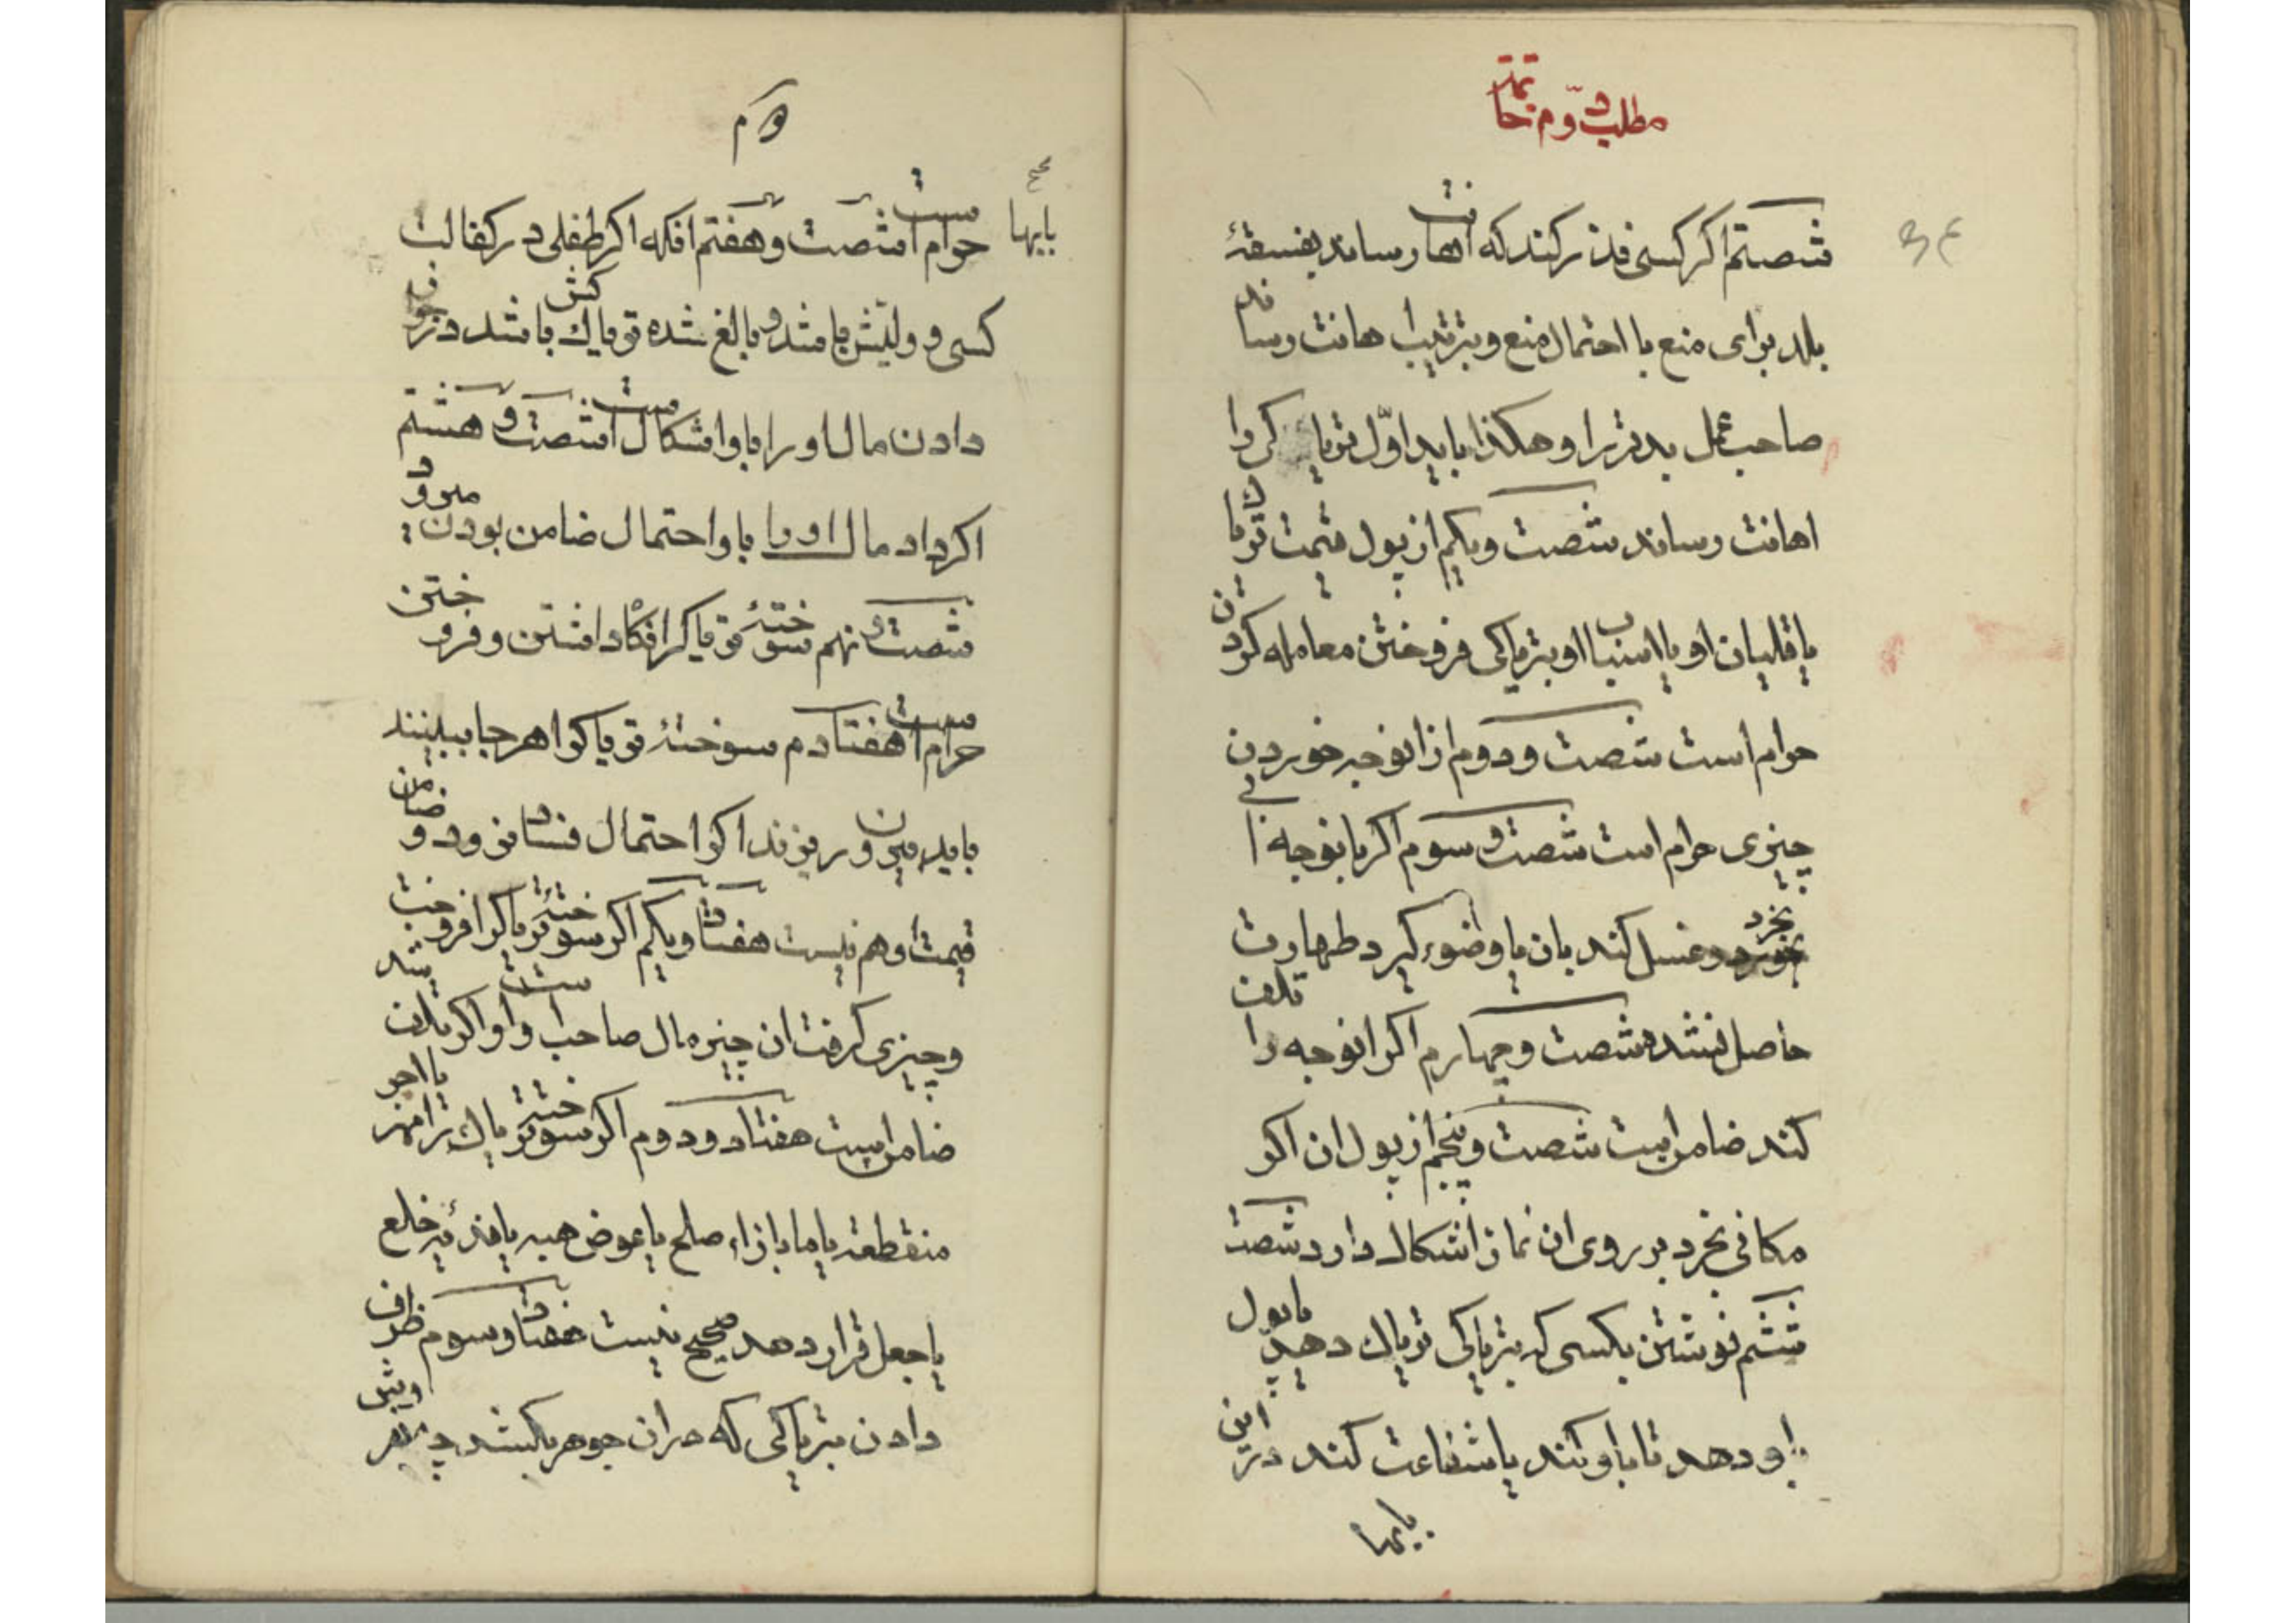 مطلب دوّم خاتمة
شصتم اگر کسی نذر کند که اهانت رساند بفسقهٔ
بلد برای منع با احتمال منع و بترتیب اهانت رساند
صاحب عمل بدتر را و هکذا باید اوّل تریاکی را
اهانت رساند شصت و یکم از پول قیمت تریاک
یا قلیان او یا اسباب او بتریاکی فروختن معامله کردن
حرام است شصت و دوم از انوجه خوردن
چیزی حرام است شصت و سوم اگر بانوجه ابی
بخرد و غسل کند بان یا وضوء گیرد طهارت
حاصل نشده شصت و چهارم اگر انوجه را تلف
کند ضامن است شصت و پنجم از پول ان اگر
مکانی بخرد بر روی ان نماز اشکال دارد شصت
ششم نوشتن بکسی که بتریاکی تریاک دهد یا پول
باو دهد تا باو کند یا شفاعت کند در این
بابها
بابها
حرام است شصت و هفتم انکه اگر طفلی در کفالت
کسی و ولیّش باشد و بالغ شده تریاک کش باشد در
دادن مال او را باو اشکال است شصت و هشتم
اگر داد مال او را باو احتمال ضامن بودن میرود
شصت و نهم سوختهٔ تریاک را نگاه داشتن و فروختن
حرام است هفتادم سوختهٔ تریاک را هر جا ببینند
باید بیرون ریزند اگر احتمال فساد نرود و ضامن
قیمت او هم نیست هفتاد و یکم اگر سوختهٔ تریاک را فروخت
و چیزی گرفت ان چیز مال صاحب او است و اگر تلف شد
ضامن است هفتاد و دوم اگر سوختهٔ تریاک را مهر یا اجر
منقطعه یا ما بازاء صلح یا عوض هبه یا فدیهٔ خلع
یا جعل قرار دهد صحیح نیست هفتاد و سوم ظرف
دادن بتریاکی که در ان جوهر بکشد